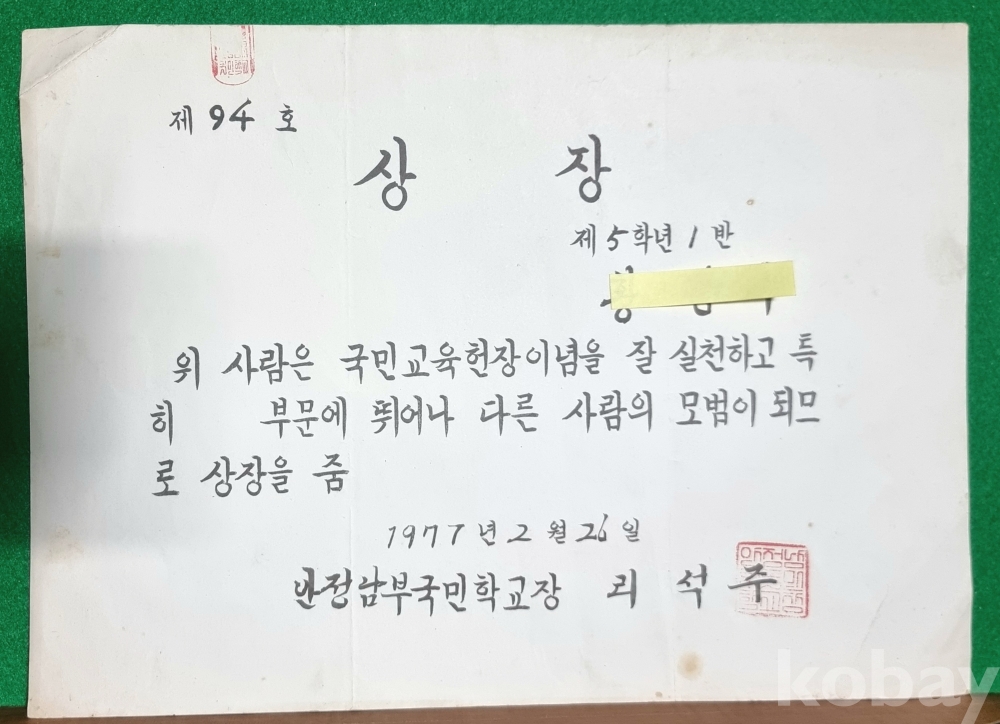 제 94 호
상 장
제 5 학년 1 반
위 사람은 국민교육헌장이념을 잘 실천하고 특
히 부문에 뛰어나 다른 사람의 모범이 되므
로 상장을 줌
1977 년 2 월 26 일
남부국민학교장 리 석 주
kobay